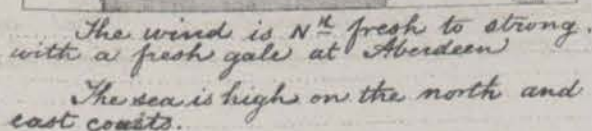 The wind is Nth fresh to strong.
with a fresh gale at Aberdeen
The sea is high on the north and
east coasts.